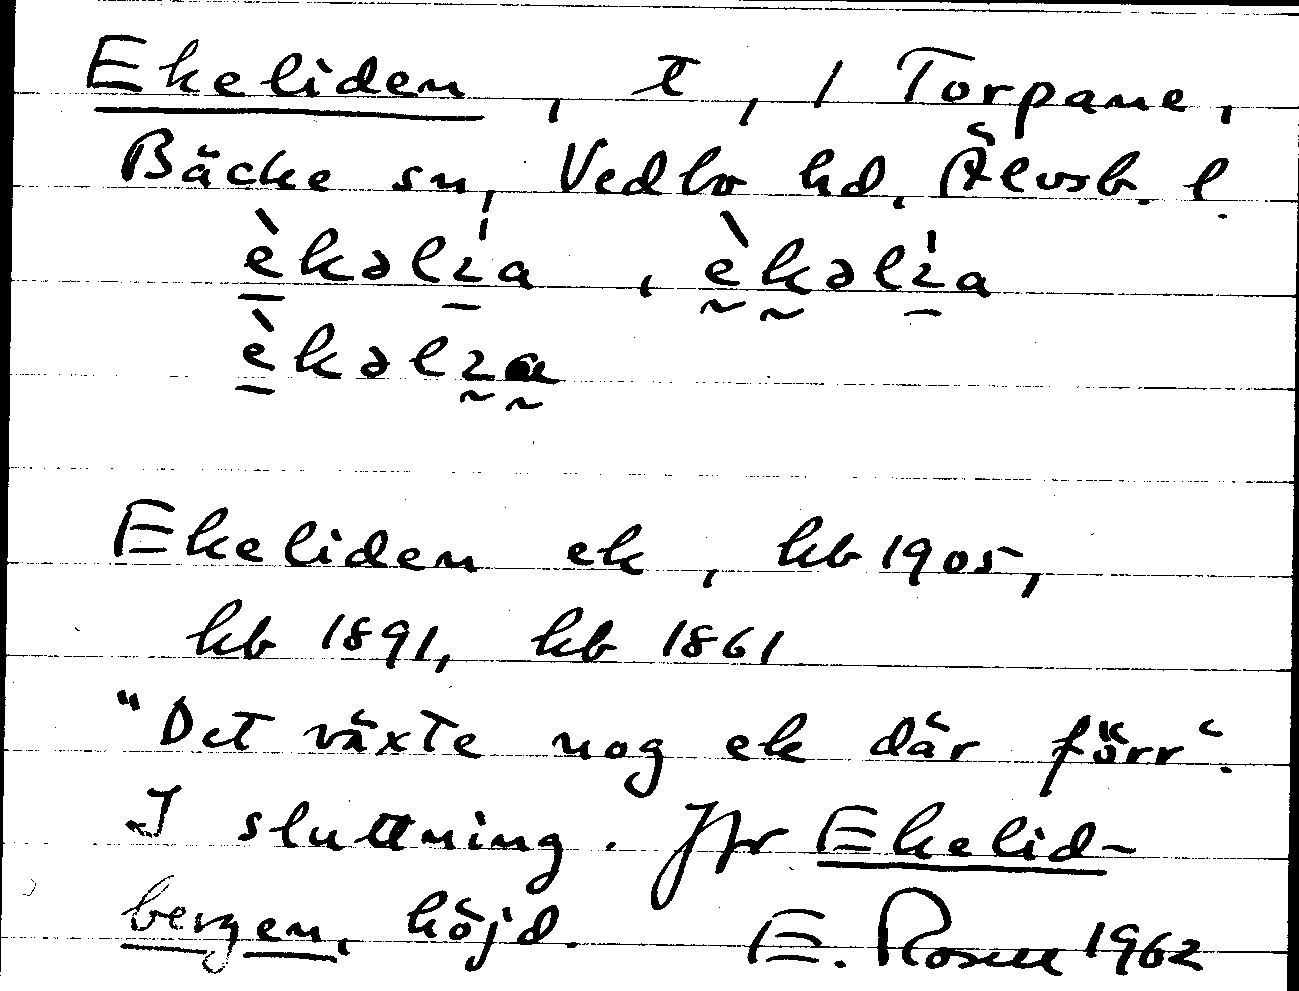 Ekeliden, t, 1 Torpane,
Bäcke sn, Vedbo hd, Älvsb. l.
èkəlịa, èkəlịa
èkəlıa
Ekeliden ek, hb 1905,
hb 1891, hb 1861
"Det växte nog ek där förr".
I sluttning. Jfr Ekelid-
bergen, höjd. E. Rosell 1962